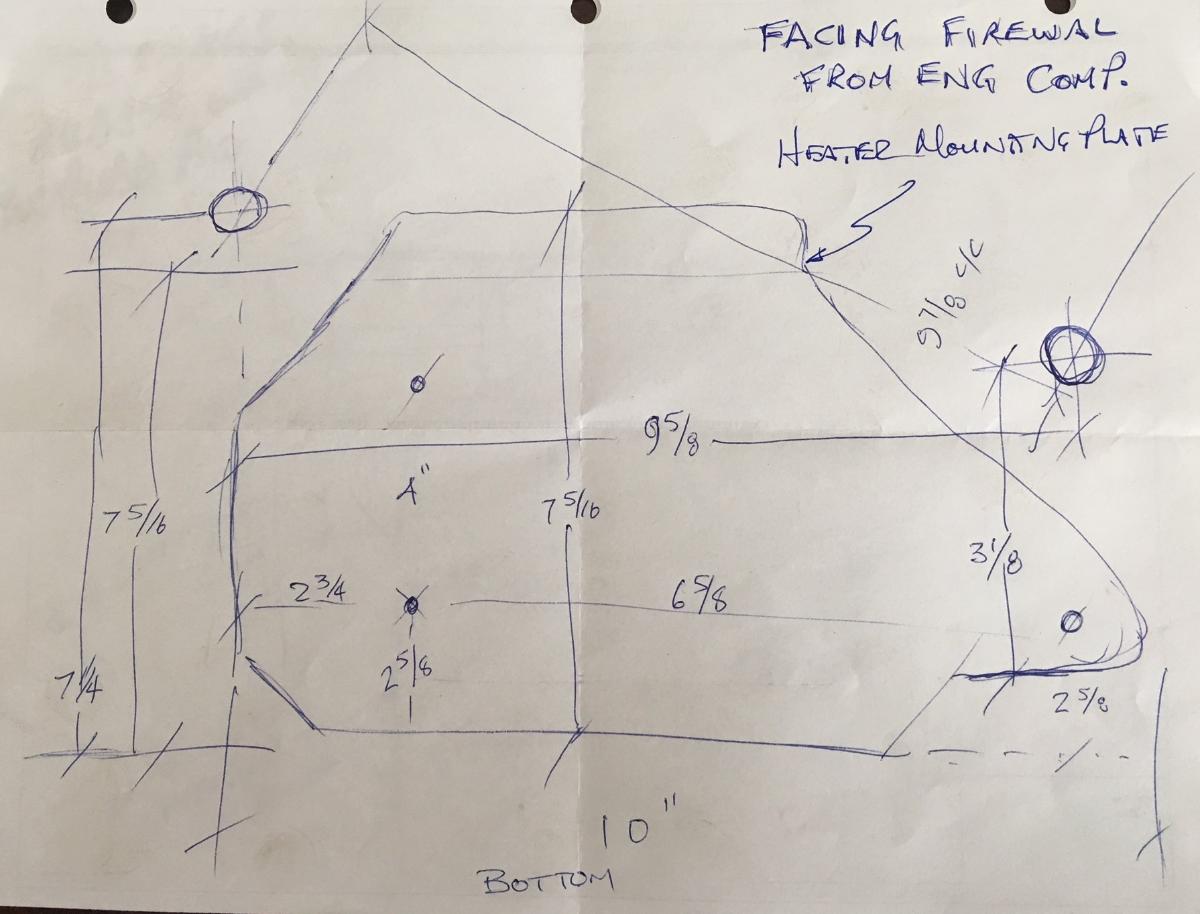 FACING FIREWAL
FROM ENG COMP.
HEATER MOUNTING PLATE
9 7/8 c/c
9 5/8
4"
7 5/16
7 5/16
3 1/8
2 3/4
6 5/8
2 5/8
7 1/4
2 5/8
10"
BOTTOM